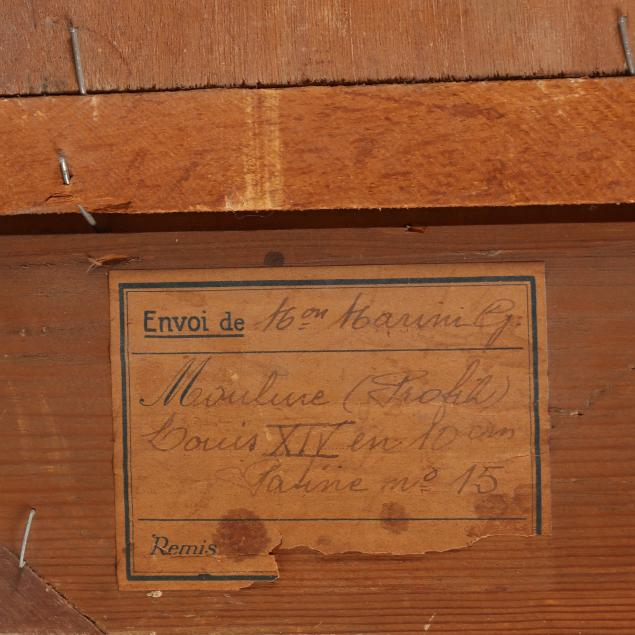 Envoi de Mon Marini G.
Moulure (Profil)
Louis XIV en 10 cm
Patine no 15
Remis